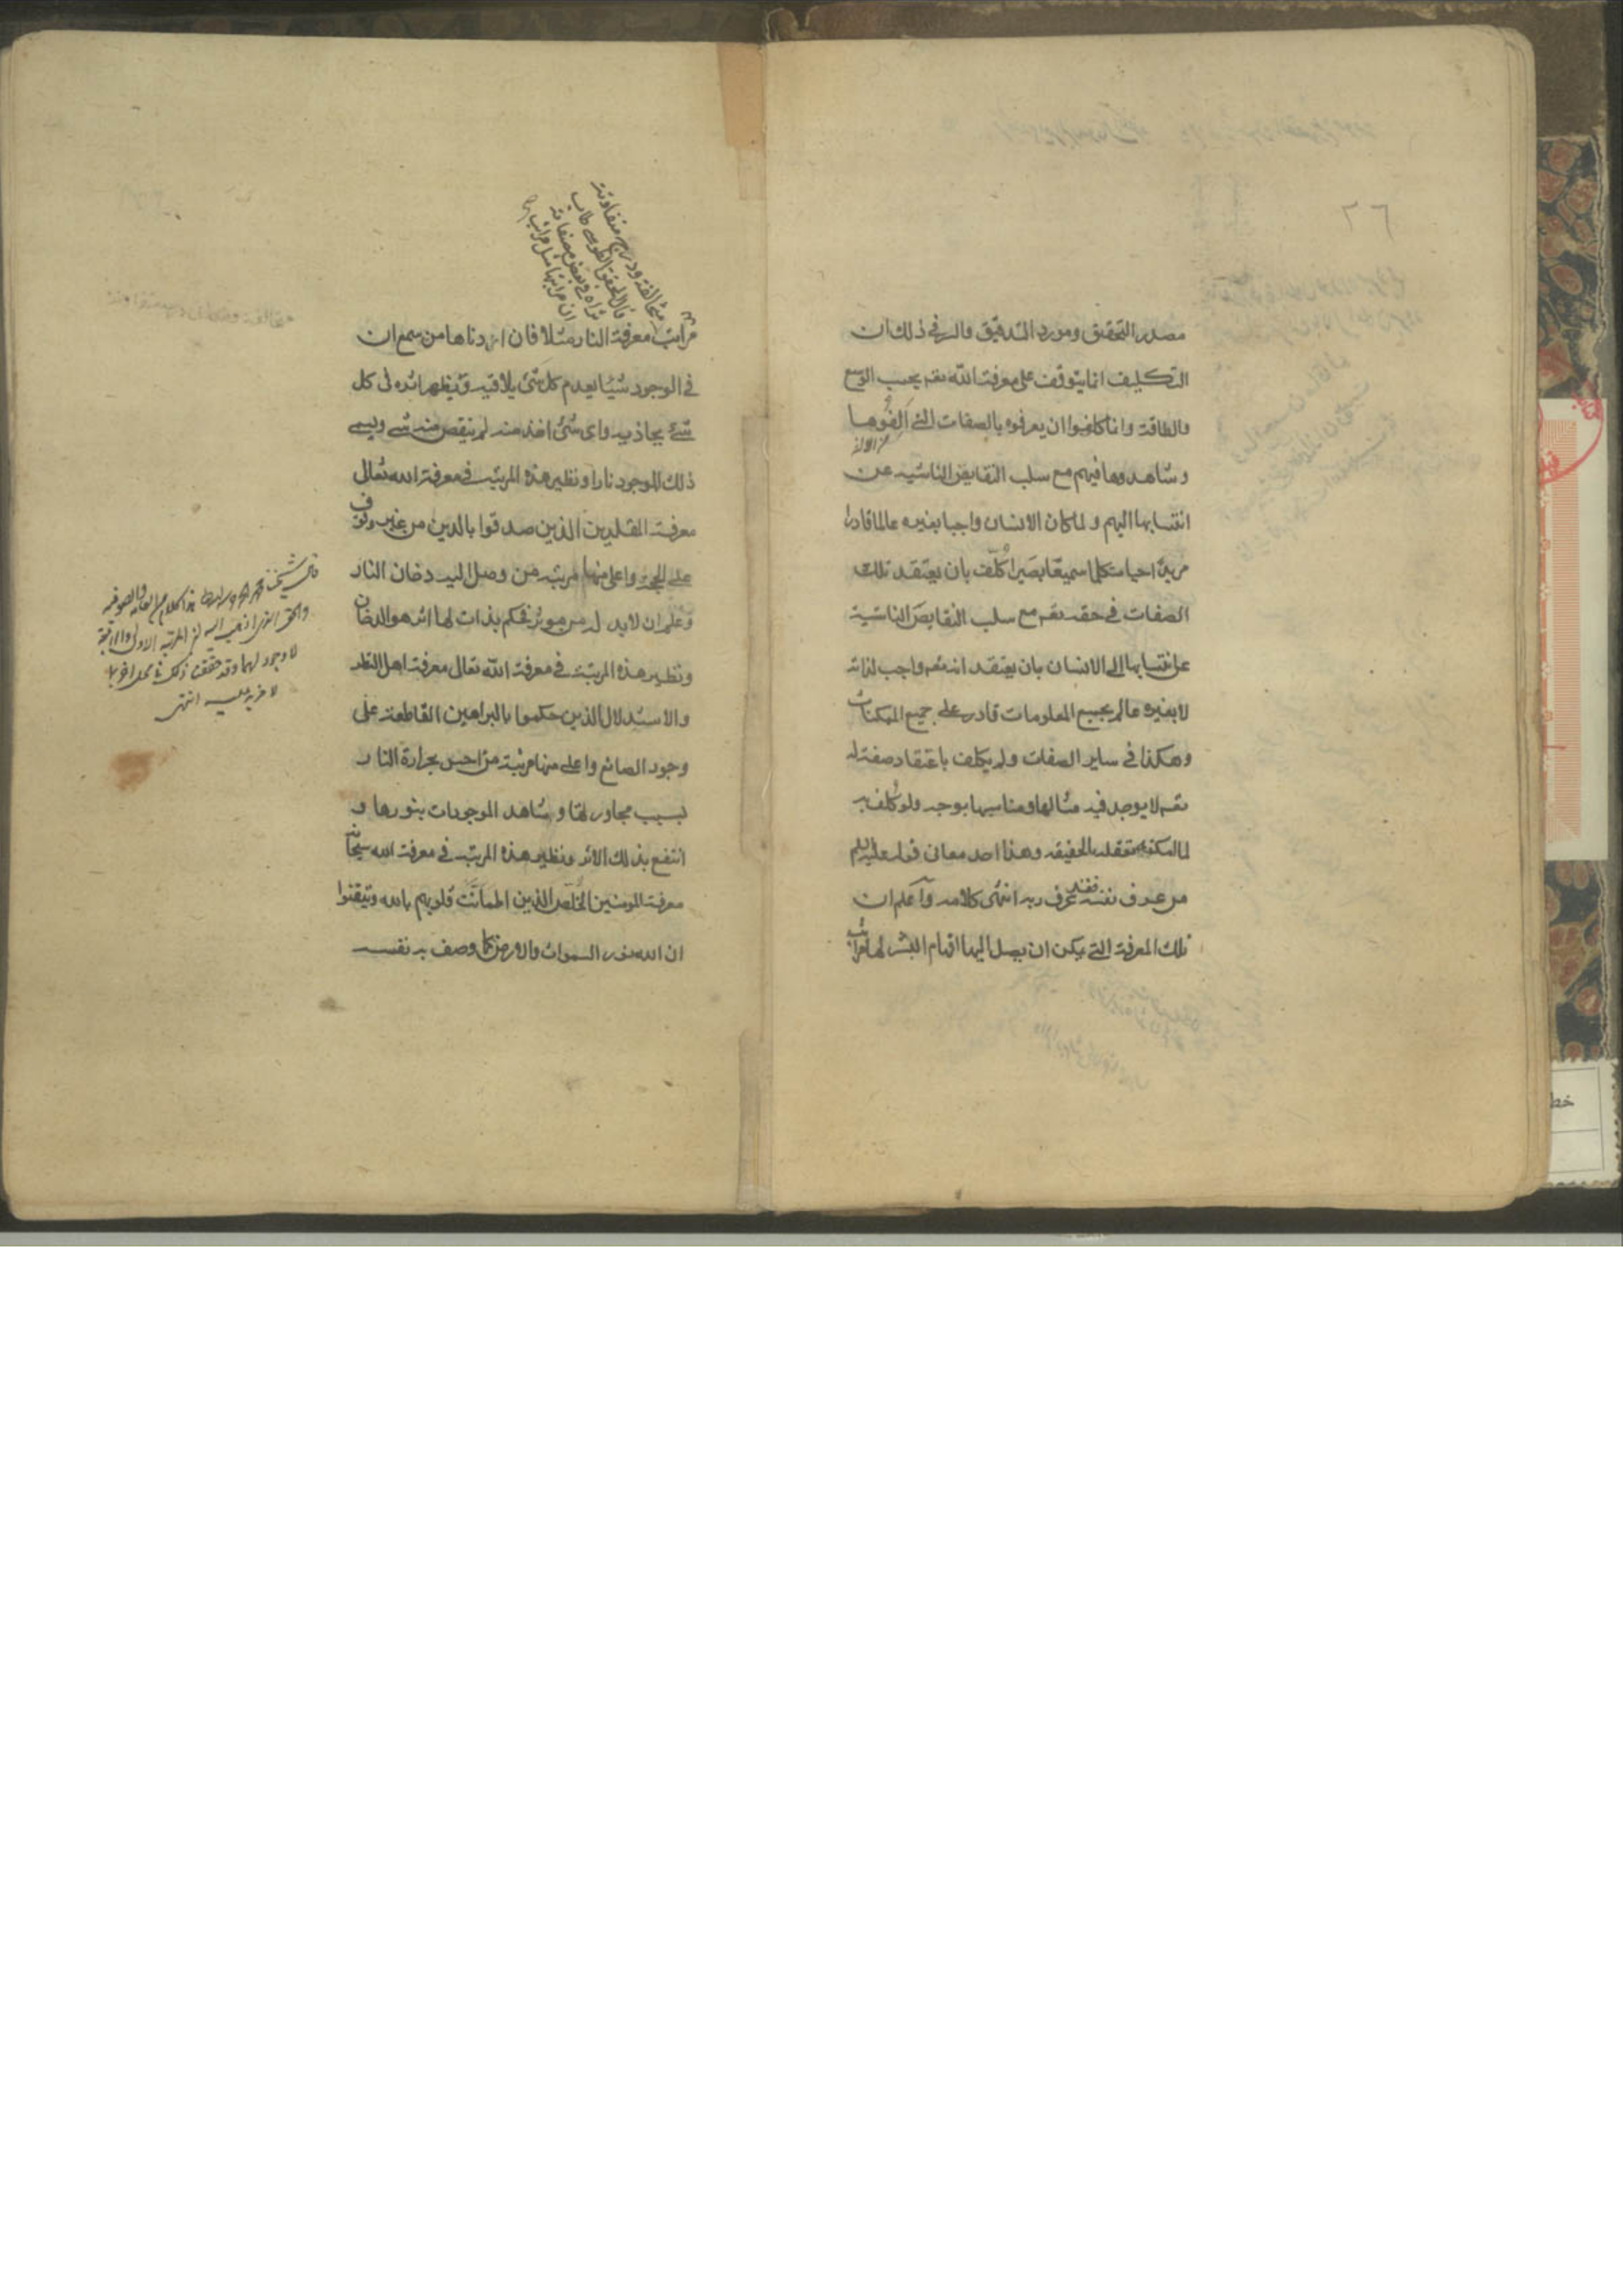 ٢٦
مصدر التحقيق ومورد التدقيق والسر في ذلك ان
التكليف انما يتوقف على معرفة الله تعم بحسب الوسع
والطاقة وانما كلفوا ان يعرفوه بالصفات التي اَلِفُوها
وشاهدوها فيهم مع سلب النقايض الناشيه عن
انتسابها اليهم ولما كان الانسان واجبا بغيره عالما قادرا
مريدا حيا متكلما سميعًا بصَيرا كُلّف بان يعتقد تلك
الصفات في حقه تعم مع سلب النقايص الناشية
عن انتسابها الى الانسان بان يعتقد انه تعم واجب لذاته
لا بغيره عالم بجميع المعلومات قادر على جميع الممكنات
وهكذا في ساير الصفات ولم يكلف باعتقاد صفة له
تعم لا يوجد فيه مثالها ومناسبها بوجه ولو كُلف به
لما امكنه تعقله بالحقيقه وهذا احد معاني قوله عليه السلم
من عرف نفسه فقد عرف ربه انتهى كلامه وآعلم ان
تلك المعرفة التي يمكن ان يصل اليها افهام البشر لها مراتب
متخالفة ودرج متفاوتة
قال المحقق الطوسي طاب
ثراه في بعض مصنفاته
ان مراتبها مثل مراتب
مراتب معرفة النار مثلا فان ادناها من سمع ان
في الوجود شيئا يعدم كل شئ يلاقيه ويظهر اثره في كل
شئ يحاذيه واى شئ اخذ منه لم ينقص منه شئ ويسمى
ذلك الموجود نارا ونظير هذه المرتبة في معرفة الله تعالى
معرفة المقلدين الذين صدقوا بالدين من غير وقوف
على الحجة واعلى منها مرتبة من وصل اليه دخان النار
وعلم ان لا بد له من موثر فحكم بذات لها اثر هو الدخان
ونظير هذه المرتبة في معرفة الله تعالى معرفة اهل النظر
والاستدلال الذين حكموا بالبراهين القاطعة على
وجود الصانع واعلى منها مرتبة من احس بحرارة النار
بسبب مجاورتها وشاهد الموجودات بنورها و
انتفع بذلك الاثر ونظير هذه المرتبة في معرفة الله سبحانه
معرفة المومنين الخلّص الذين اطمانّت قلوبهم بالله وتيقنوا
ان الله نور السموات والارض كما وصف به نفسه
والحق الذى اذهب اليه ان المرتبه الاولى والرابعة
لا وجود لهما وقد حققت ذلك في محل اخر بما
لا مزيد عليه انتهى